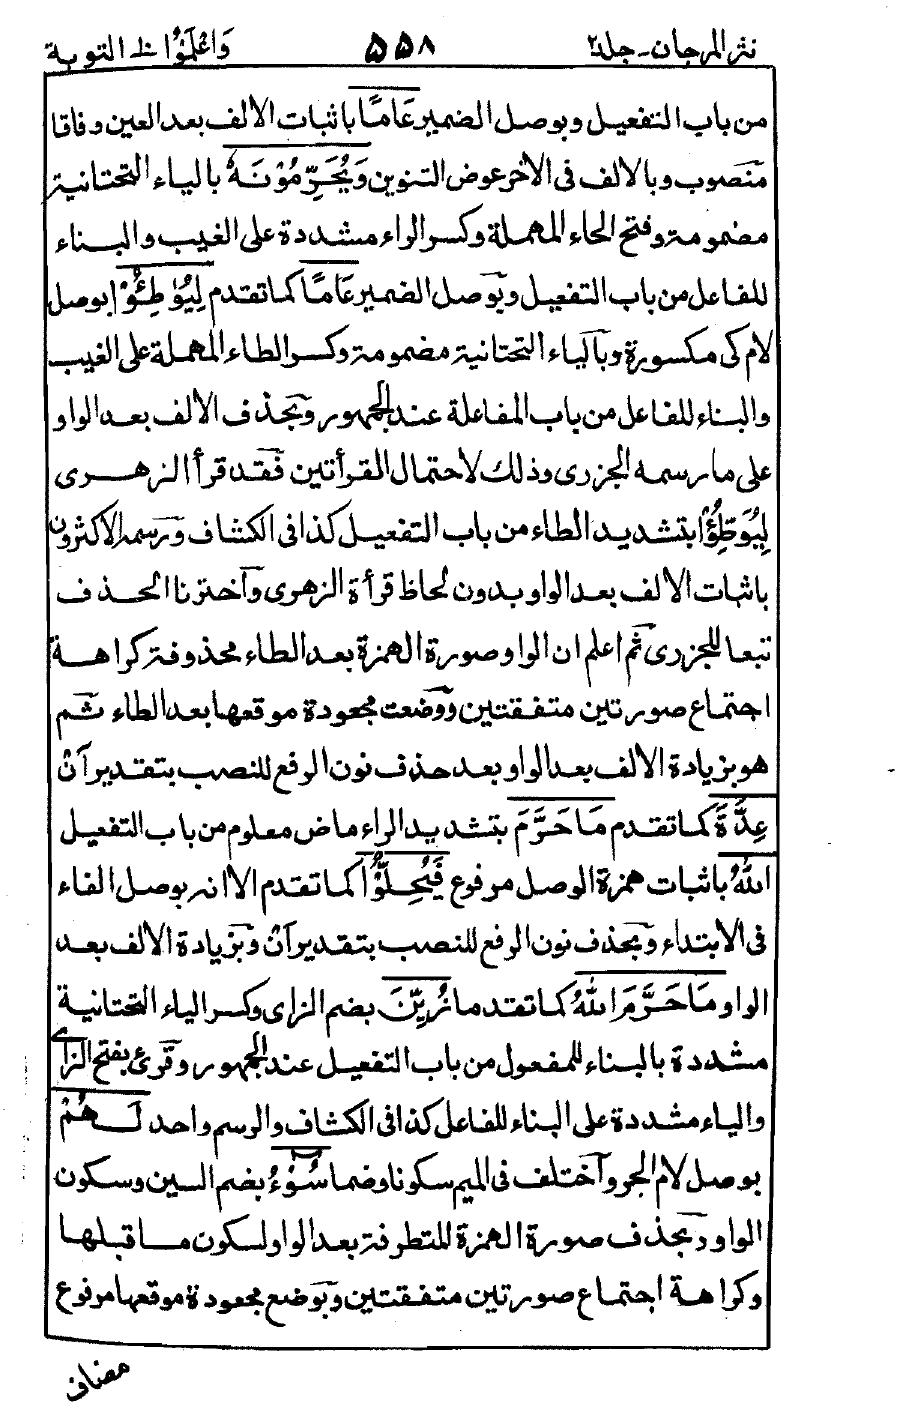 نثر المرجان - جلد ٢
٥٥٨
وَاعْلَمُوْا ١٠ التوبة
من باب التفعيل وبوصل الضمير عَامًا باثبات الالف بعد العين وفاقا
منصوب وبالالف فى الاٰخر عوض التنوين وَيُحَرِّمُوْنَهٗ بالياء التحتانية
مضمومة وفتح الحاء المهملة وكسر الراء مشددة على الغيب والبناء
للفاعل من باب التفعيل وبوصل الضمير عَامًا كما تقدم لِيُوٰطِئُوْا بوصل
لام كى مكسورة وبالياء التحتانية مضمومة وكسر الطاء المهملة على الغيب
والبناء للفاعل من باب المفاعلة عند الجمهور وبحذف الالف بعد الواو
على ما رسمه الجزرى وذلك لاحتمال القرأتين فقد قرأ الزهرى
لِيُوَطِّؤُا بتشديد الطاء من باب التفعيل كذا فى الكشاف ورسمه الاكثرون
باثبات الالف بعد الواو بدون لحاظ قرأة الزهرى وآخترنا الحذف
تبعا للجزرى ثم اعلم ان الواو صورة الهمزة بعد الطاء محذوفة كراهة
اجتماع صورتين متفقتين ووضعت مجعودة موقعها بعد الطاء ثم
هو بزيادة الالف بعد الواو بعد حذف نون الرفع للنصب بتقدير اَنْ
عِدَّةَ كما تقدم مَا حَرَّمَ بتشديد الراء ماض معلوم من باب التفعيل
اللهُ باثبات همزة الوصل مرفوع فَيُحِلُّوْا كما تقدم الا انه بوصل الفاء
فى الابتداء وبحذف نون الرفع للنصب بتقدير اَنْ وبزيادة الالف بعد
الواو مَا حَرَّمَ اللهُ كما تقدم زُيِّنَ بضم الزاى وكسر الياء التحتانية
مشددة بالبناء للمفعول من باب التفعيل عند الجمهور وقرئ بفتح الزاى
والياء مشددة على البناء للفاعل كذا فى الكشاف والرسم واحد لَهُمْ
بوصل لام الجر وآختلف فى الميم سكونا وضما سُوْٓءُ بضم السين وسكون
الواو وبحذف صورة الهمزة المتطرفة بعد الواو لسكون ما قبلها
وكراهة اجتماع صورتين متفقتين وبوضع مجعودة موقعها مرفوع
مضاف